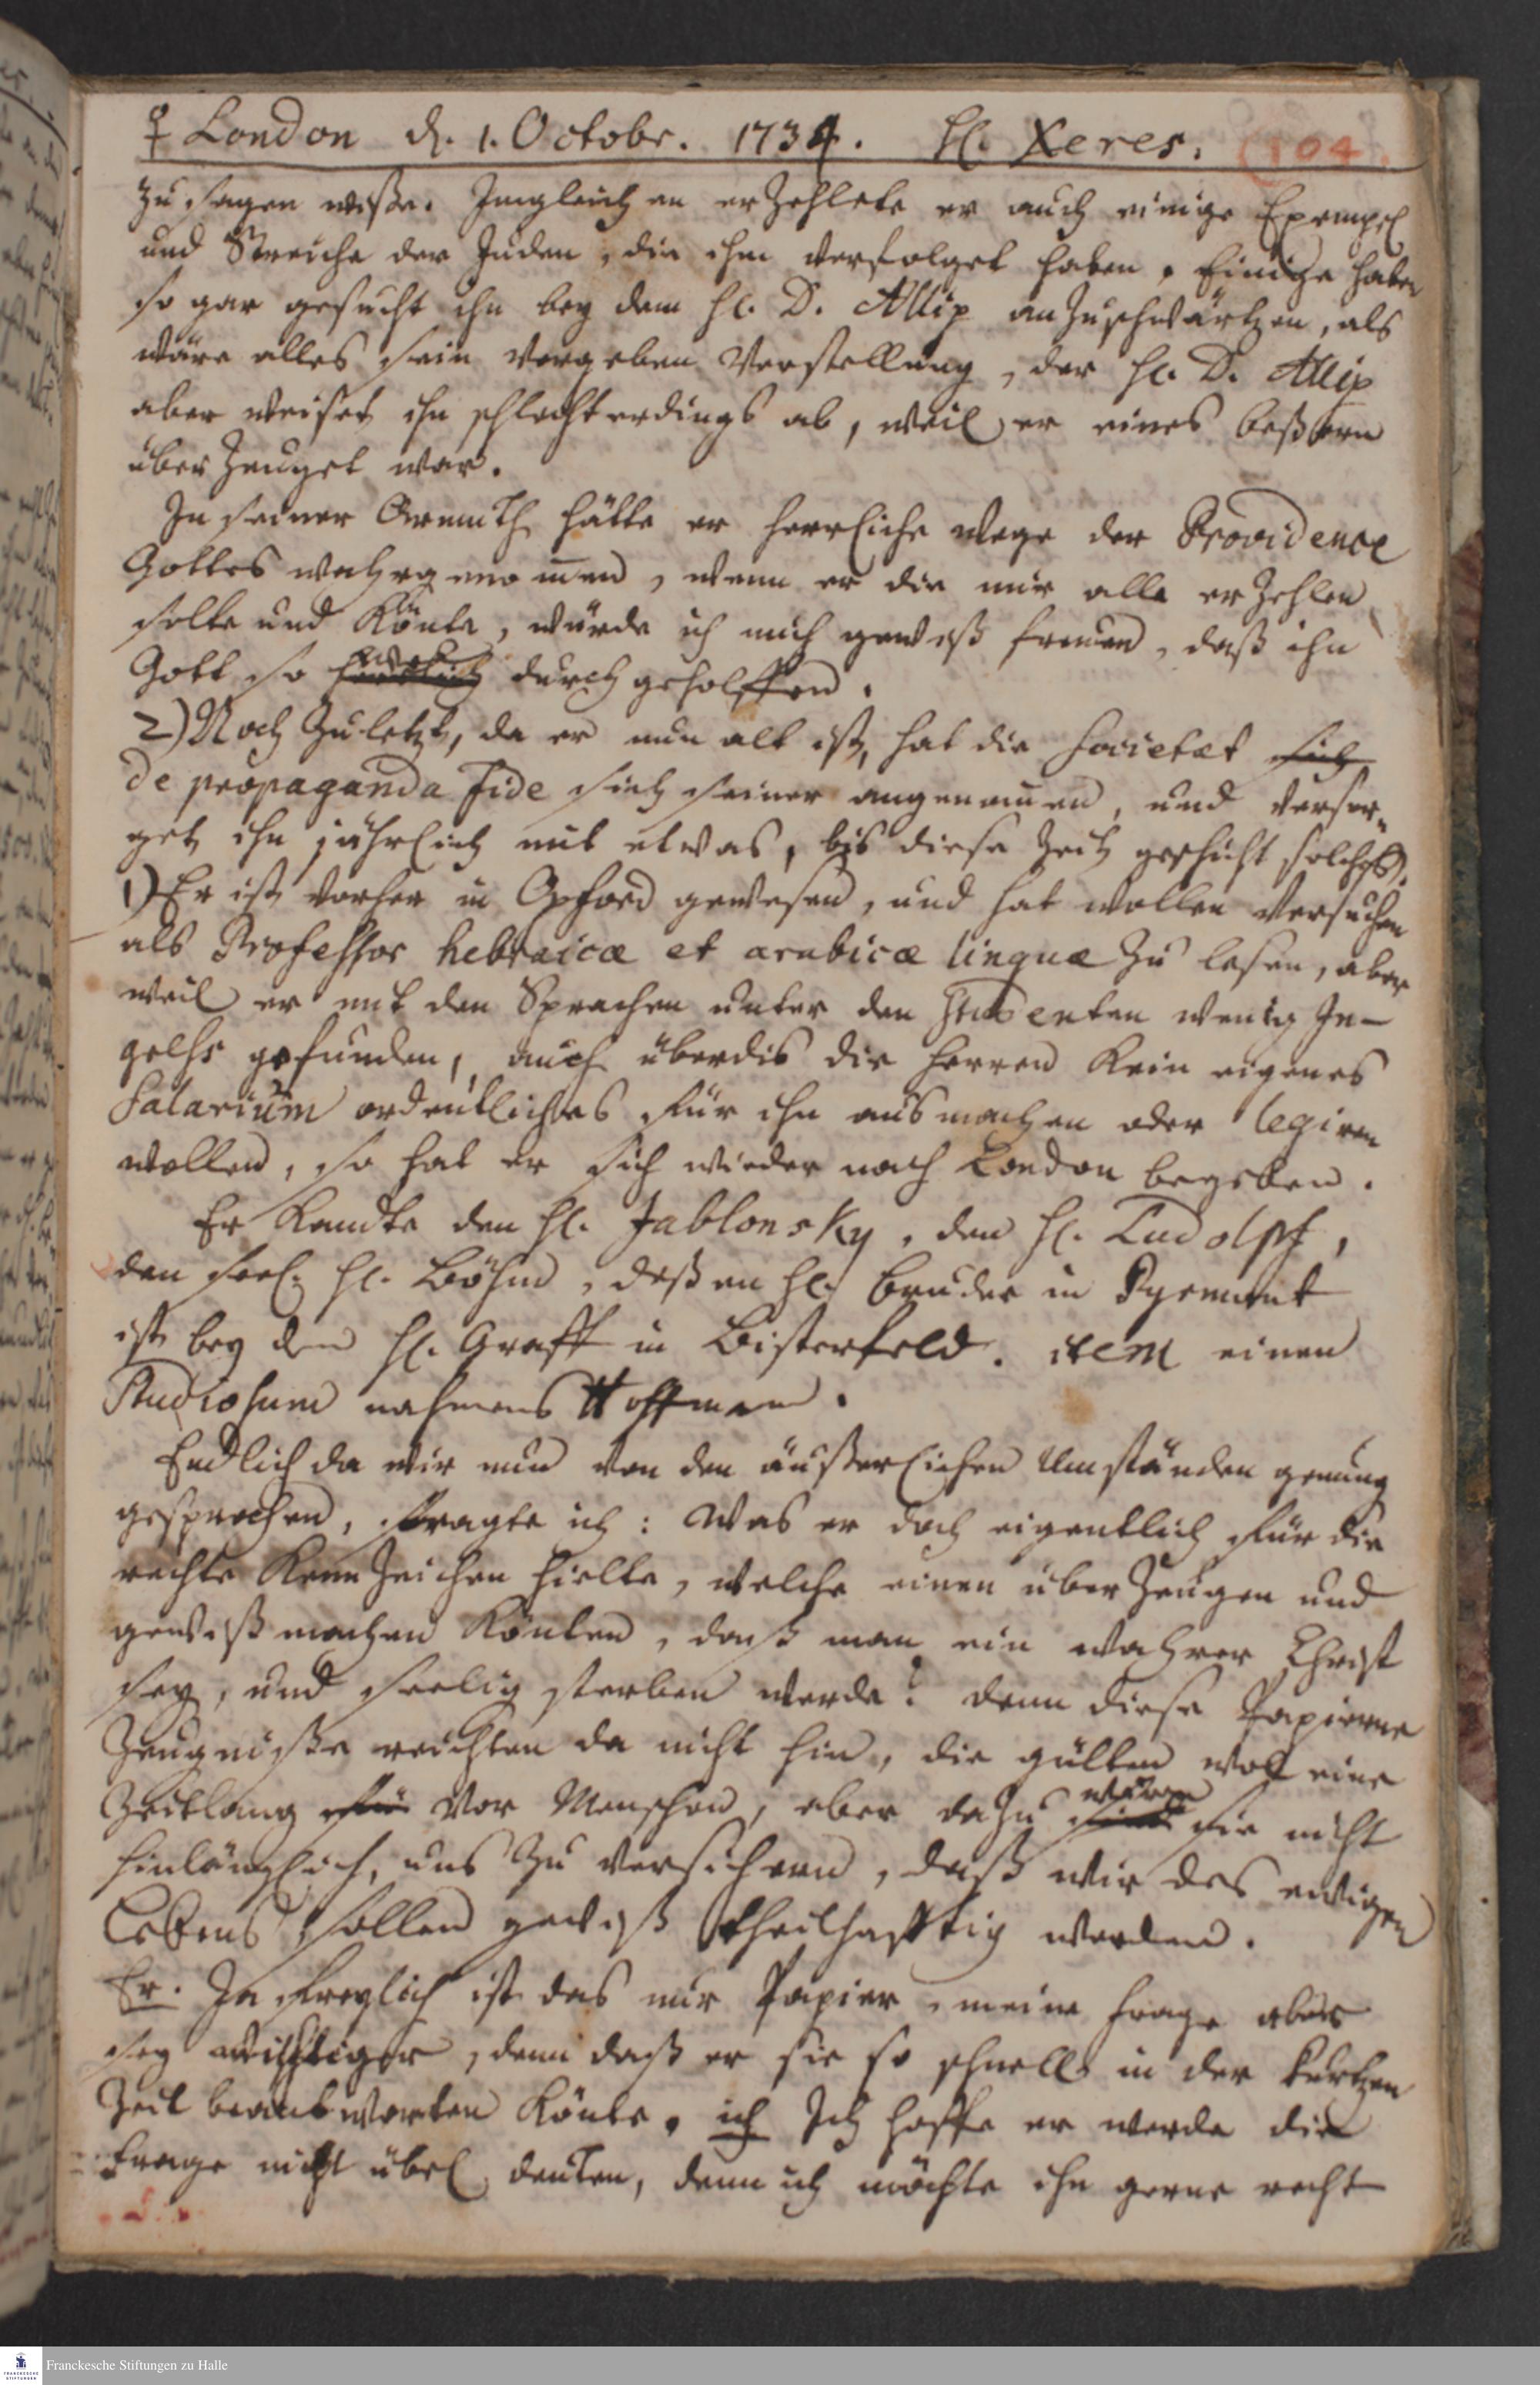 ♀ London d. 1. Octobr. 1734. H. Xeres. 104.
zu sagen wiße. Imgleichen erzehlete er auch einige Exempel
und Streiche der Juden, die ihm verfolget haben. Einige haben
so gar gesucht ihn bey dem H. D. Allix anzuschwärtzen, als
wäre alles sein Vorgeben Verstellung, der H. D. Allix
aber weiset ihn schlechterdings ab, weil er eines beßern
überzeuget war.
In seiner Armuth hätte er herrliche Wege der Providence
Gottes wahrgenommen, wenn er die mir alle erzehlen
solte und könte, würde ich mich gewiß freuen, daß ihn
Gott so durch geholffen.
2) Noch zuletzt, da er nun alt ist, hat die Societæt sich
de propaganda fide sich seiner angenommen, und versor-
get ihn jährlich mit etwas, bis diese Zeit geschicht solches.
1) Er ist vorher in Oxford gewesen, und hat wollen versuchen
als Professor hebraicæ et arabicæ linguæ zu lesen, aber
weil er mit den Sprachen unter den Studenten wenig In-
greß gefunden, auch überdis die Herren kein eigenes
Salarium ordentliches für ihn ausmachen oder legiren
wollen, so hat er sich wieder nach London begeben.
Er kandte den H. Jablonsky, den H. Ludolph,
den seel. H. Böhm, deßen H. Bruder in Pyrmont
ist bey dem H. Graff in Bisterfeld. item einen
Studiosum nahmens Hoffmann.
Endlich da wir nun von den äußerlichen Umständen genung
gesprochen, fragte ich: Was er doch eigentlich für die
rechte Kennzeichen hielte, welche einen überzeugen und
gewiß machen könten, daß man ein wahrer Christ
sey, und seelig sterben werde? denn diese Papierne
Zeugniße reichten da nicht hin, die gülten wol eine
Zeitlang für vor Menschen, aber dazu sind wären sie nicht
hinlänglich, uns zu versichern, daß wir des ewigen
Lebens sollen gewiß theilhafftig werden.
Er. Ja freylich ist das nur Papier, meine Frage aber
sey wichtiger, denn daß er sie so schnell in der kurtzen
Zeit beantworten könte. ich Ich hoffe er werde die
Frage nicht übel deuten, denn ich möchte ihn gerne recht
Franckesche Stiftungen zu Halle